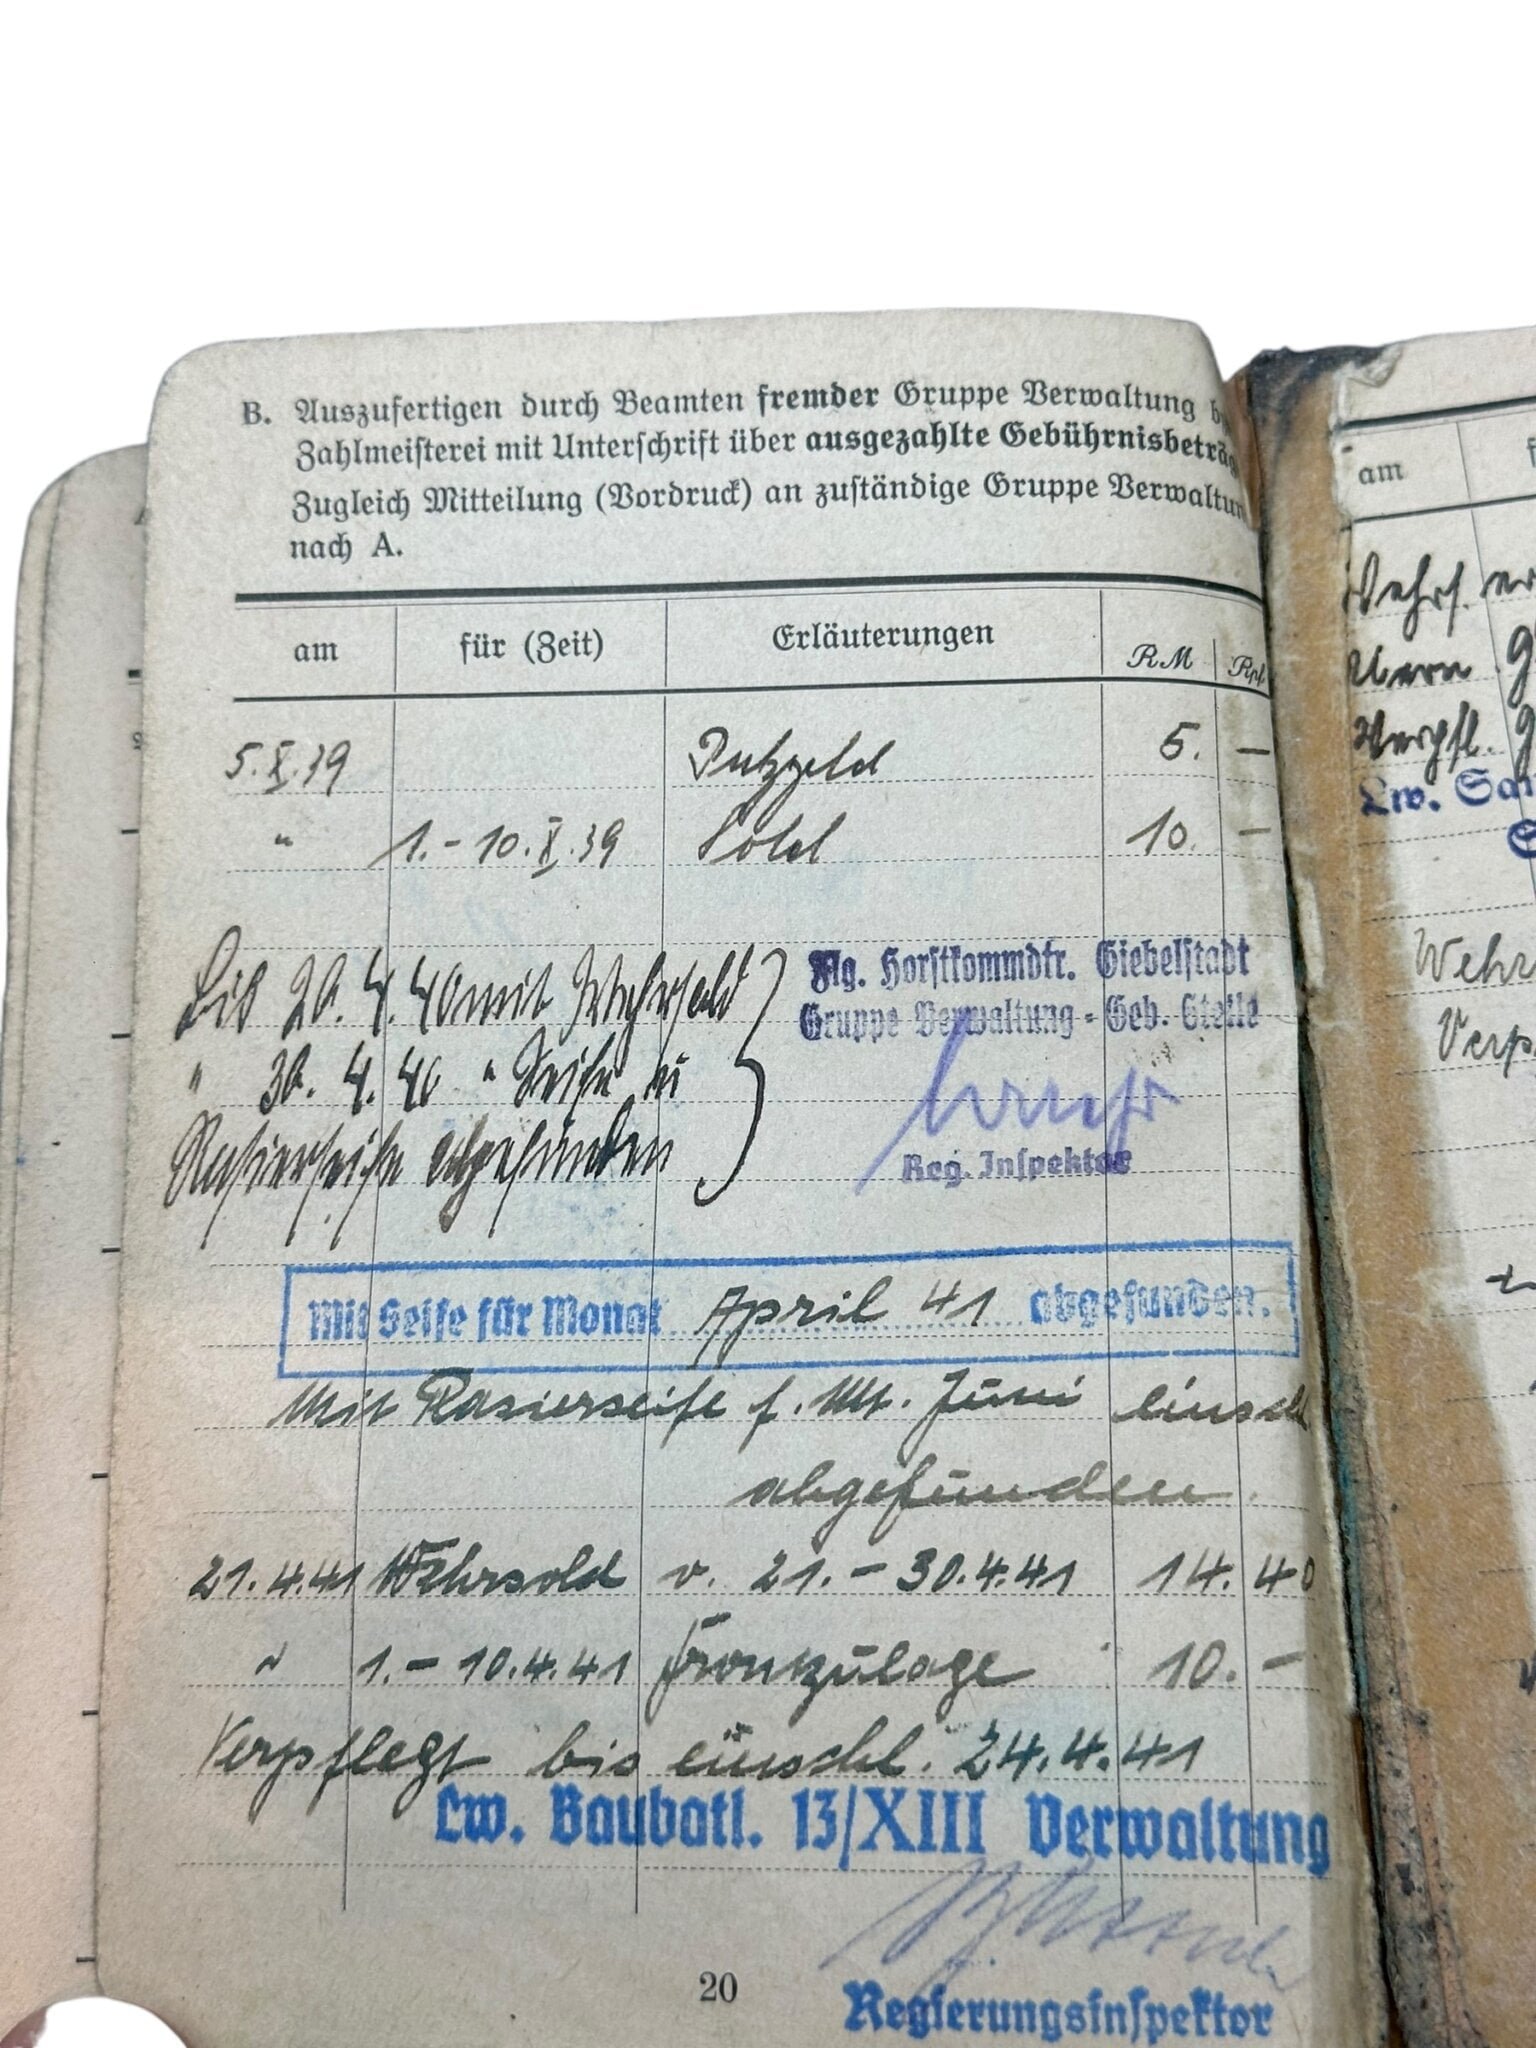 B. Auszufertigen durch Beamten fremder Gruppe Verwaltung
Zahlmeisterei mit Unterschrift über ausgezahlte Gebührnisbeträg
Zugleich Mitteilung (Vordruck) an zuständige Gruppe Verwaltun
nach A.
am für (Zeit) Erläuterungen RM Rpf.
5.X.39 Putzgeld 5. —
" 1.-10.X.39 Sold 10. —
Bis 20.4.40 mit Wehrsold
" 30.4.40 " Seife u
Rasierseife abgefunden
Flg. Horstkommdtr. Giebelstadt
Gruppe Verwaltung - Geb. Stelle
Reg. Inspektor
Mit Seife für Monat April 41 abgefunden.
Mit Rasierseife f. Mt. Juni einschl
abgefunden.
21.4.41 Wehrsold v. 21.-30.4.41 14.40
" 1.-10.4.41 Frontzulage 10.-
Verpflegt bis einschl. 24.4.41
Lw. Baubatl. 13/XIII Verwaltung
Regierungsinspektor
20
am
Wehrs.
Verpfl.
Lw.
Wehr
Verp